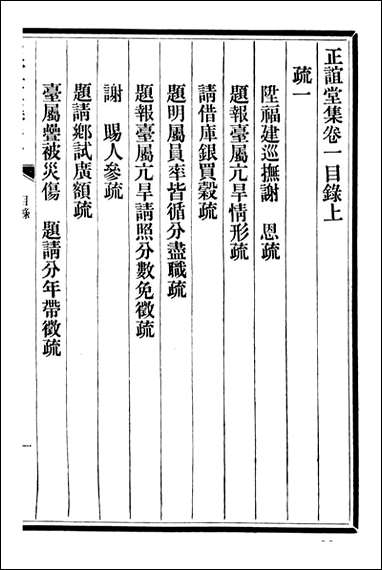 正誼堂集卷一目錄上
疏一
陞福建巡撫謝　恩疏
題報臺屬亢旱情形疏
請借庫銀買穀疏
題明屬員率皆循分盡職疏
題報臺屬亢旱請照分數免徵疏
謝　賜人參疏
題請鄉試廣額疏
臺屬疊被災傷　題請分年帶徵疏
目錄
一